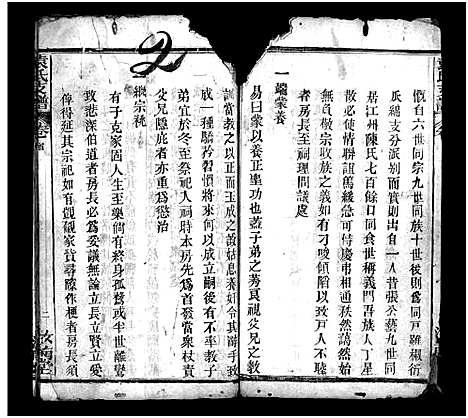 慨自六世同宗九世同族十世後則同戶雖親衍
瓜瓞支分派别而實則出自一人昔張公藝九世同
居江州陳氏七百餘口同食世稱義門吾族人丁星
必使情聯誼篤緩急可恃慶弔相通藹然藹然始
為敦宗收族之義如有刁唆領唇以致戶人不睦
者房長至祠理問議處
一端蒙養
易曰蒙以養正聖功也蓋子弟之芳莫視父兄之教
訓當教之以正而玉成之故姑息養奸令其游手致
成一種驕矜習慣將來何以成立嗣後有不率教子
弟宜於冬至祭祀人祠時本房先為首發當眾杖責
父兄隱庇者亦重為懲治
一繼宗祧
有子克家固人生至樂倘有終身孤鸞或半世離鸞
致悲深伯道者房長必為妥議無論立長立賢立愛
俾得延其宗祀如有覬覦家貲尋隙作梗者房長須
袁氏支譜
卷首
二
2